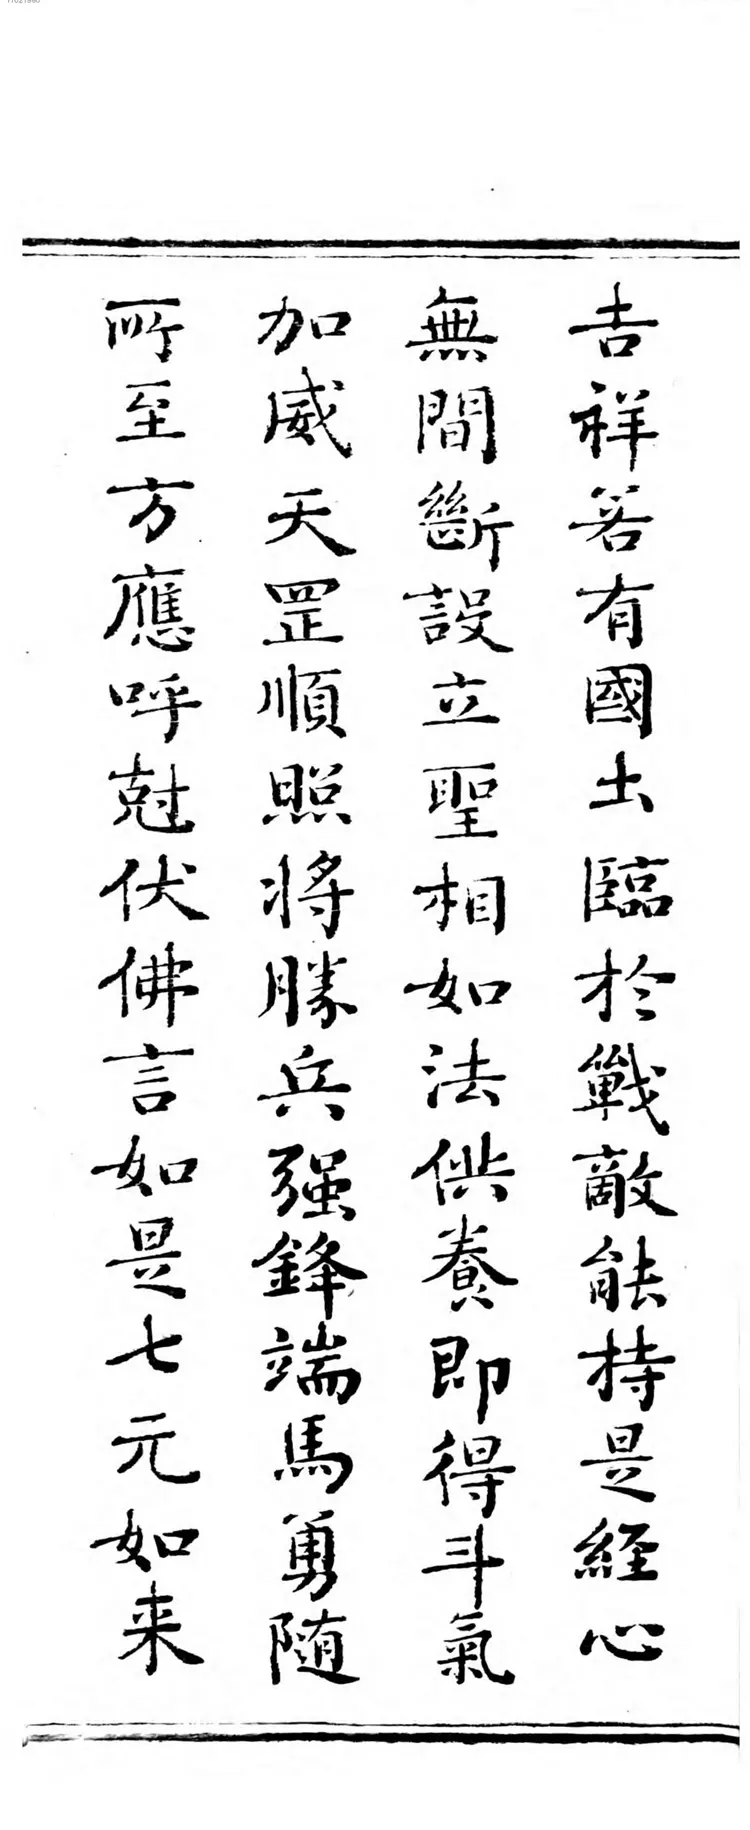 吉祥若有國土臨於戰敵能持是経心
無間斷設立聖相如法供養即得斗氣
加威天罡順照將勝兵强鋒端馬勇随
所至方應呼尅伏佛言如是七元如来